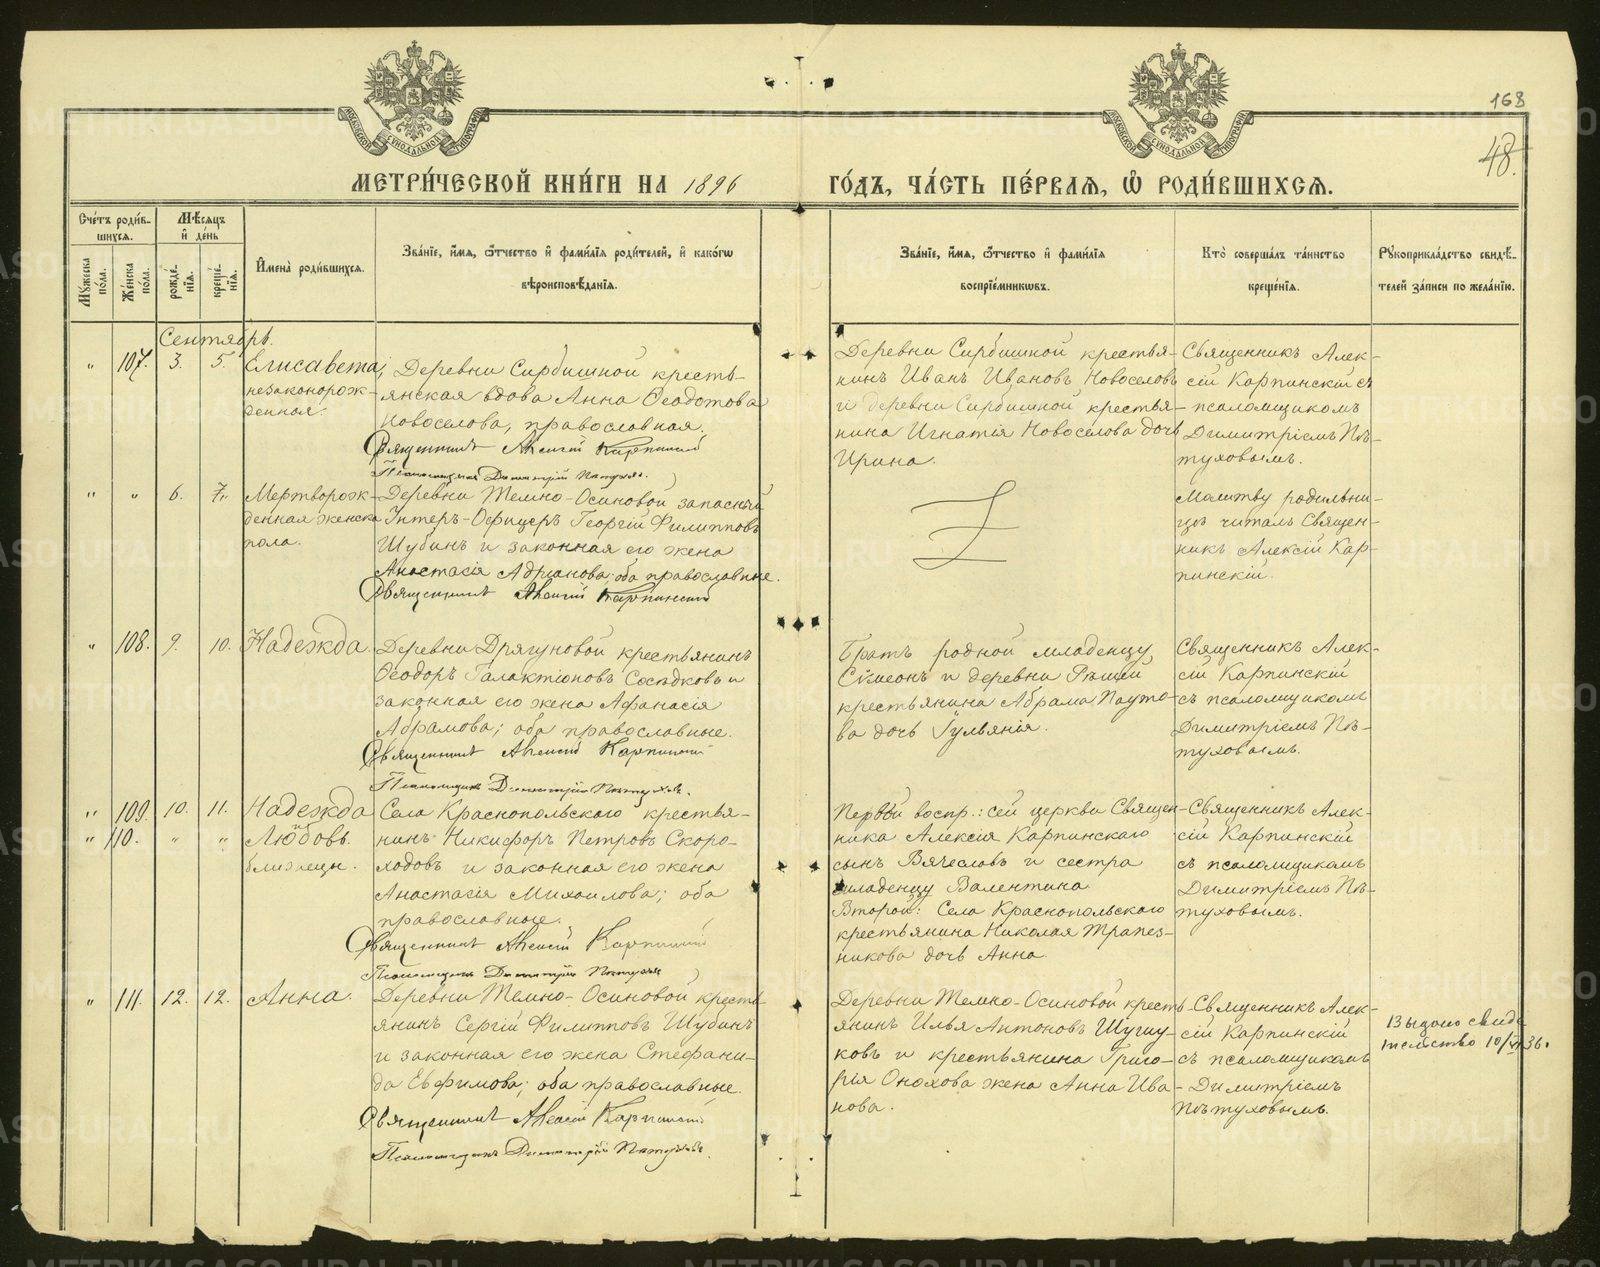 168
48.
МЕТРИЧЕСКОЙ КНИГИ НА 1896 ГОДЪ, ЧАСТЬ ПЕРВАЯ, Ѡ РОДИВШИХСЯ.
Счетъ родив-
шихся.
Мѣсяцъ
и день
Мужеска
пола.
Женска
пола.
рожде-
нія.
креще-
нія.
Имена родившихся.
Званіе, имя, ѻтчество и фамилія родителей, и какогѡ
вѣроисповѣданія.
Званіе, имя, ѻтчество и фамилія
воспріемникѡвъ.
Кто совершалъ таинство
крещенія.
Рукоприкладство свидѣ-
телей записи по желанію.
Сентябрь.
„ 107. 3. 5. Елисавета,
незаконорож-
денная.
Деревни Сирбишной кресть-
янская вдова Анна Ѳеодотова
Новоселова, православная.
Священникъ Алексій Карпинскій
Псаломщикъ Димитрій Пѣтуховъ.
Деревни Сирбишной крестья-
нинъ Иванъ Ивановъ Новоселовъ
и деревни Сирбишной крестья-
нина Игнатія Новоселова дочь
Ирина.
Священникъ Алек-
сій Карпинскій съ
псаломщикомъ
Димитріемъ Пѣ-
туховымъ.
„ „ 6. 7. Мертворож-
денная женска
пола.
Деревни Темно-Осиновой запасный
Унтеръ-Офицеръ Георгій Филипповъ
Шубинъ и законная его жена
Анастасія Адріанова; оба православные.
Священникъ Алексій Карпинскій
Молитву родильни-
цѣ читалъ Священ-
никъ Алексій Кар-
пинскій.
„ 108. 9. 10. Надежда.
Деревни Дрягуновой крестьянинъ
Ѳеодоръ Галактіоновъ Сосѣдковъ и
законная его жена Афанасія
Абрамова; оба православные.
Священникъ Алексій Карпинскій
Псаломщикъ Димитрій Пѣтуховъ.
Братъ родной младенцу
Сѵмеонъ и деревни
крестьянина Абрама Пауто-
ва дочь Гульянія.
Священникъ Алек-
сій Карпинскій
съ псаломщикомъ
Димитріемъ Пѣ-
туховымъ.
„ 109. 10. 11. Надежда
„ 110. „ „ Любовь.
близнецы.
Села Краснопольскаго крестья-
нинъ Никифоръ Петровъ Скоро-
ходовъ и законная его жена
Анастасія Михаилова; оба
православные.
Священникъ Алексій Карпинскій
Псаломщикъ Димитрій Пѣтуховъ
Первой воспр.: сей церкви Священ-
ника Алексія Карпинскаго
сынъ Вячеславъ и сестра
младенцу Валентина
Второй: Села Краснопольскаго
крестьянина Николая Трапез-
никова дочь Анна
Священникъ Алек-
сій Карпинскій
съ псаломщикомъ
Димитріемъ Пѣ-
туховымъ.
„ 111. 12. 12. Анна.
Деревни Темно-Осиновой кресть-
янинъ Сергій Филипповъ Шубинъ
и законная его жена Стефани-
да Евфимова; оба православные.
Священникъ Алексій Карпинскій
Псаломщикъ Димитрій Пѣтуховъ.
Деревни Темно-Осиновой кресть-
янинъ Илья Антоновъ
ковъ и крестьянина Григо-
рія Онохова жена Анна Ива-
нова.
Священникъ Алек-
сій Карпинскій
съ псаломщикомъ
Димитріемъ
Пѣтуховымъ.
Выдано свиде
тельство 10/VI 36.